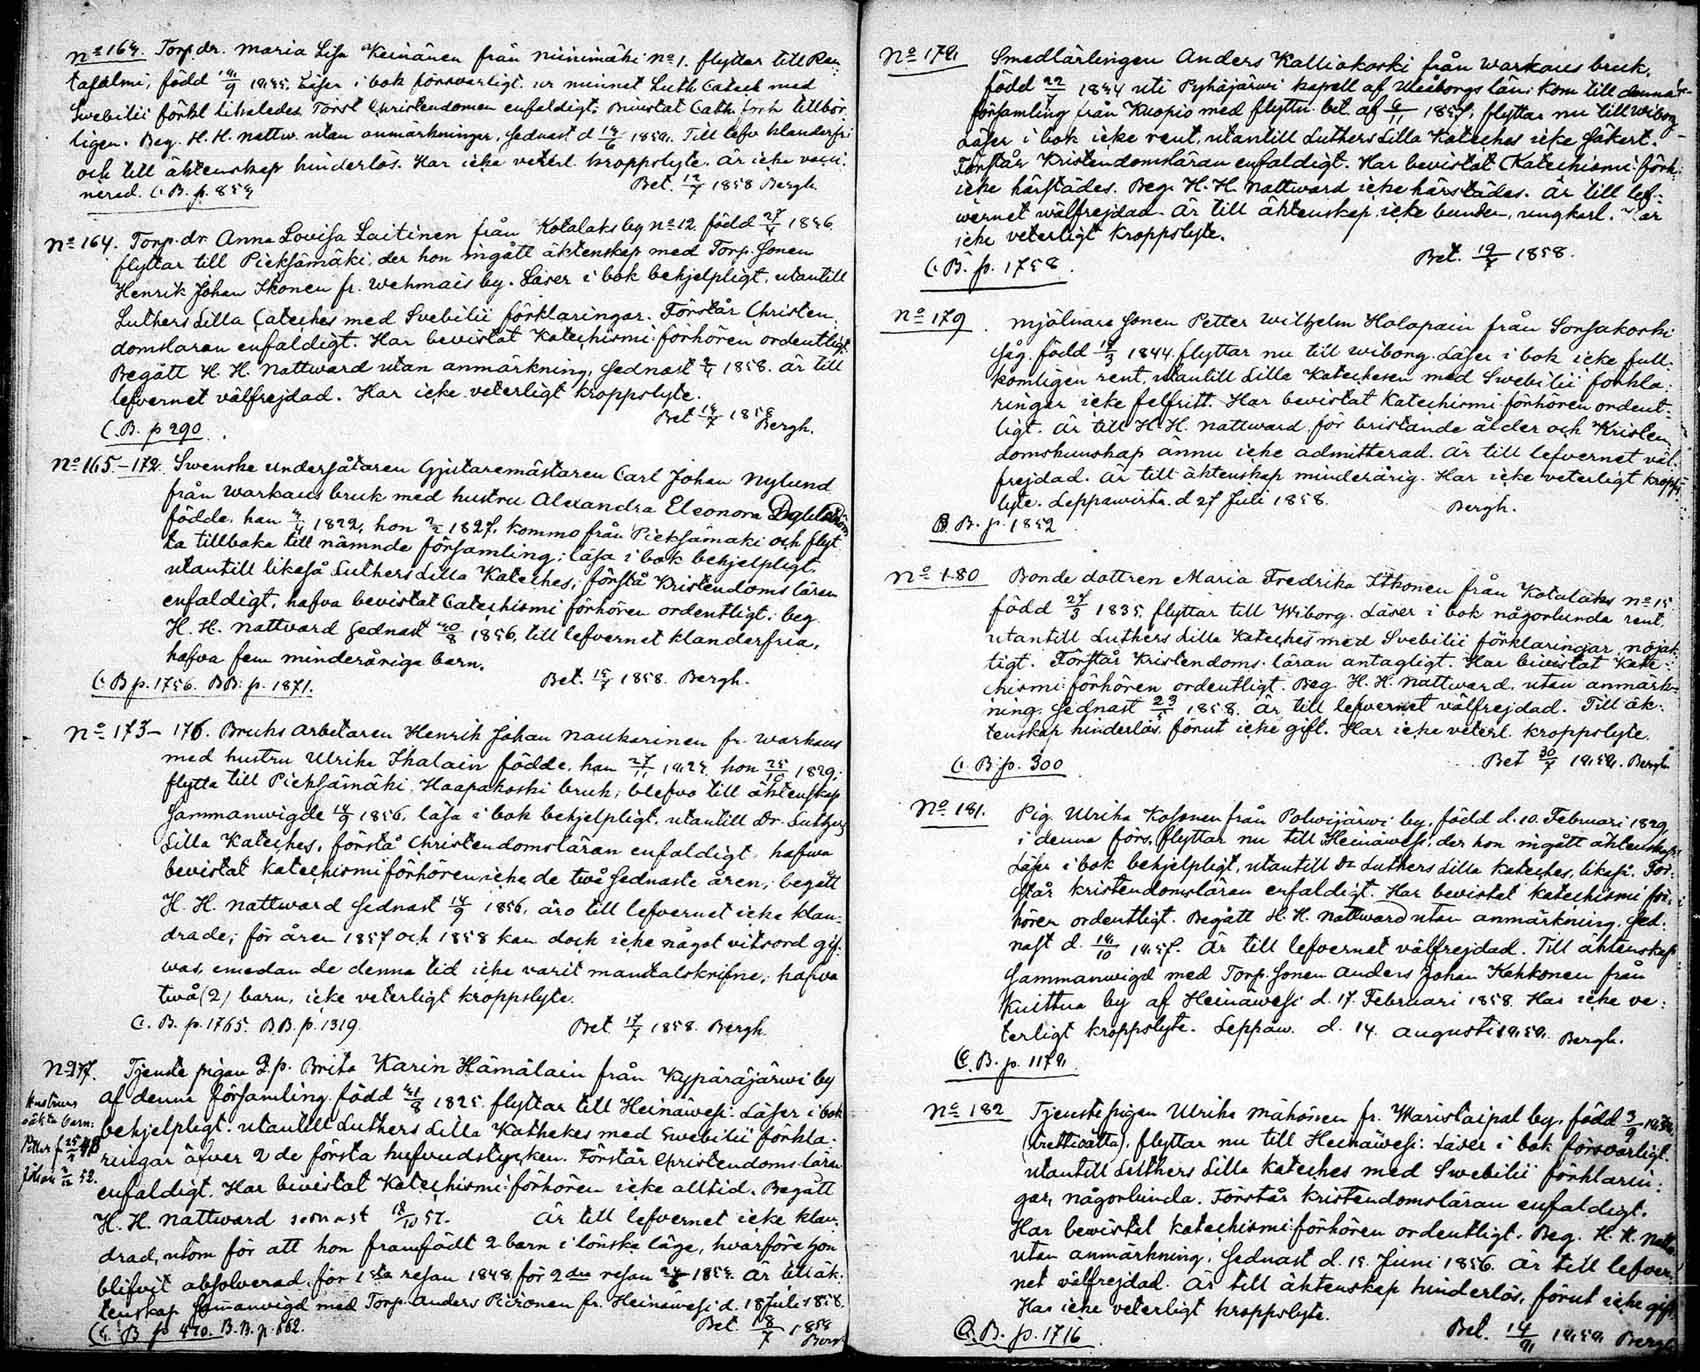 No 163. Torp.dr. Maria Lisa Keinänen från Niinimäki No 1. flyttar till Ran-
tasalmi, född 1835. Läser i bok försvarligt. ur minnet Luth. Catech med
Swebilii förkl likaledes. Först Christendomen enfaldigt. Bivistat Cath. förh. tillbör-
ligen. Beg. H. H. nattw. utan anmärkninger, sednast d 1858. Till lefv klanderfri
och till äktenskap hinderlös. Har icke veterl kroppslyte. är icke vacci-
nerad. C.B. p. 859 Bet. 12/7 1858 Bergh.
No 164. Torp.dr Anna Lovisa Laitinen från Kotalaks by No 12. född 1836
flyttar till Pieksämäki, der hon ingått äktenskap med Torp. sonen
Henrik Johan Ikonen fr. Wehmais by. Läser i bok behjelpligt. utantill
Luthers Lilla Cateches med Svebilii förklaringar. Förstår Christen-
domsläran enfaldigt. Har bevistat Katechismi förhören ordentligt.
Begått H. H. Nattward utan anmärkning, sednast 1858. är till
lefvernet välfrejdad. Har icke veterligt kroppslyte.
C.B. p 290 Bet 14/7 1858 Bergh.
No 165.-172. Swenske undersåtaren Gjutaremästaren Carl Johan Nylund
från Warkaus bruk med hustru Alexandra Eleonora
födde, han 1822, hon 1827, kommo från Pieksämäki och flyt
ta tillbaka till nämnde församling; läsa i bok behjelpligt.
utantill likeså Luthers Lilla Kateches; förstå Kristendoms lären
enfaldigt, hafva bevistat Catechismi förhören ordentligt; beg.
H. H. Nattward sednast 1856, till lefvernet klanderfria,
hafva fem minderåriga barn.
C.B p. 1756. B.B. p. 1871. Bet. 15/7 1858. Bergh.
No 173-176. Bruks arbetaren Henrik Johan Naukarinen fr. Warkaus
med hustru Ulrika Ikalain födde, han 27/11 hon 25/10 1829;
flytta till Pieksämäki, Haapakoski bruk; blefvo till äktenskap
sammanwigde 14/9 1856, läsa i bok behjelpligt. utantill Dr. Luthers
Lilla Kateches, förstå Christendomsläran enfaldigt, hafwa
bevistat Katechismi förhören icke de två sednaste åren; begått
H. H. Nattward sednast 14/9 1856, äro till lefvernet icke klan-
drade; för åren 1857 och 1858 kan dock icke något vitsord gif-
was, emedan de denna tid icke varit mantalskrifne; hafva
två (2) barn, icke veterligt kroppslyte.
C. B. p. 1765. B.B. p. 1319. Bet 17/7 1858. Bergh.
No 177. Tjenste pigan Brita Karin Hämälain från Kypäräjärwi by
af denna församling född 21/8 1825. flyttar till Heinäwesi. Läser i bok
behjelpligt. utantill Luthers Lilla Kathekes med Swebilii förkla-
ringar öfver 2 de första hufvudstycken. Förstår Christendoms läran
enfaldigt. Har bevistat Katechismi-förhören icke alltid. Begått
H. H. Nattward sednast 18/10 57. Är till lefvernet icke klan-
drad, utom för att hon framfödt 2 barn i lönska läge, hvarföre hon
blifvit absolverad, för 1sta resan 1848, för 2dra resan 1853. Är till äk-
tenskap sammanvigd med Torp. Anders Piironen fr. Heinäwesi d. 18 Juli 1858.
C.B p 470. B.B. p. 662. Bet. 18/7 1858 Bergh
Hustruns
oäkta barn:
Petter f 25/2 48
Johan 52.
No 178. Smedlärlingen Anders Kalliokoski från Warkaus bruk,
född 22/7 1834 uti Pyhäjärwi kapell af Uleåborgs län; kom till denna
församling från Kuopio med flyttn. bet. af 6/11 1857, flyttar nu till Wiborg
Läser i bok icke rent, utantill Luthers Lilla Kateches icke säkert.
Förstår Kristendomsläran enfaldigt. Har bevistat Katechismi förh.
icke härstädes. Beg. H. H. Nattward icke härstädes. Är till lef-
wernet wälfrejdad. Är till äktenskap icke bunden, ungkarl. Har
icke veterligt kroppslyte.
C.B. p. 1758. Bet. 19/7 1858.
No 179. Mjölnare sonen Petter Wilhelm Holapain från Sorsakoski
såg, född 1844. flyttar nu till Wiborg. Läser i bok icke full-
komligen rent, utantill Lilla Katechesen med Swebilii forkla-
ringar icke felfritt. Har bevistat Katechismi förhören ordent-
ligt. Är till H. H. Nattward för bristande ålder och Kristen-
domskunskap ännu icke admitterad. Är till lefvernet väl-
frejdad. är till äktenskap minderårig. Har icke veterligt kropps-
lyte. Leppäwirta. d. 27 Juli 1858. Bergh.
B. B. p. 1852
No 180 Bonde dottren Maria Fredrika Itkonen från Kotalaks No 15.
född 24/3 1835, flyttar till Wiborg. Läser i bok någorlunda rent,
utantill Luthers Lilla Kateches med Svebilii förklaringar nöjak-
tigt. Förstår Kristendoms läran antagligt. Har bivistat Kate-
chismi förhören ordentligt. Beg. H. H. Nattward, utan anmärk-
ning, sednast 1858. Är till lefvernet välfrejdad. Till äk-
tenskap hinderlös, förut icke gift. Har icke veterl. kroppslyte.
C. B. p. 300 Bet 30/7 1858. Bergh.
No 181. Pig. Ulrika Kosonen från Polwijärwi by, född d. 10. Februari 1829
i denna förs. flyttar nu till Heinäwesi, der hon ingått äktenskap.
Läser i bok behjelpligt, utantill Dr Luthers Lilla Kateches, likaså. För-
står kristendomsläran enfaldigt. Har bevistat Katechismi för-
hören ordentligt. Begått H. H. Nattward utan anmärkning, sed-
nast d. 18/10 1857. Är till lefvernet välfrejdad. Till äktenskap
sammanwigd med Torp. Sonen Anders Johan Kahkonen från
Kuittua by af Heinäwesi d. 17. Februari 1858. Har icke ve-
terligt kroppslyte. Leppäw. d. 14. Augusti 1858. Bergh.
C. B. p. 1178
No 182 Tjenstepigan Ulrika Mähönen fr. Waristaipal by, född 3/9 1838
(trettioåtta), flyttar nu till Heinäwesi: Läser i bok försvarligt.
utantill Luthers Lilla Kateches med Swebilii förklarin-
gar, någorlunda. Förstår Kristendomsläran enfaldigt.
Har bevistat Katechismi-förhören ordentligt. Beg. H. H. Nattw.
utan anmärkning, sednast d. 15. Juni 1856. Är till lefver-
net välfrejdad. Är till äktenskap hinderlös, förut icke gift.
Har icke veterligt kroppslyte.
C.B. p. 1716 Bet. 14/8 1858 Bergh